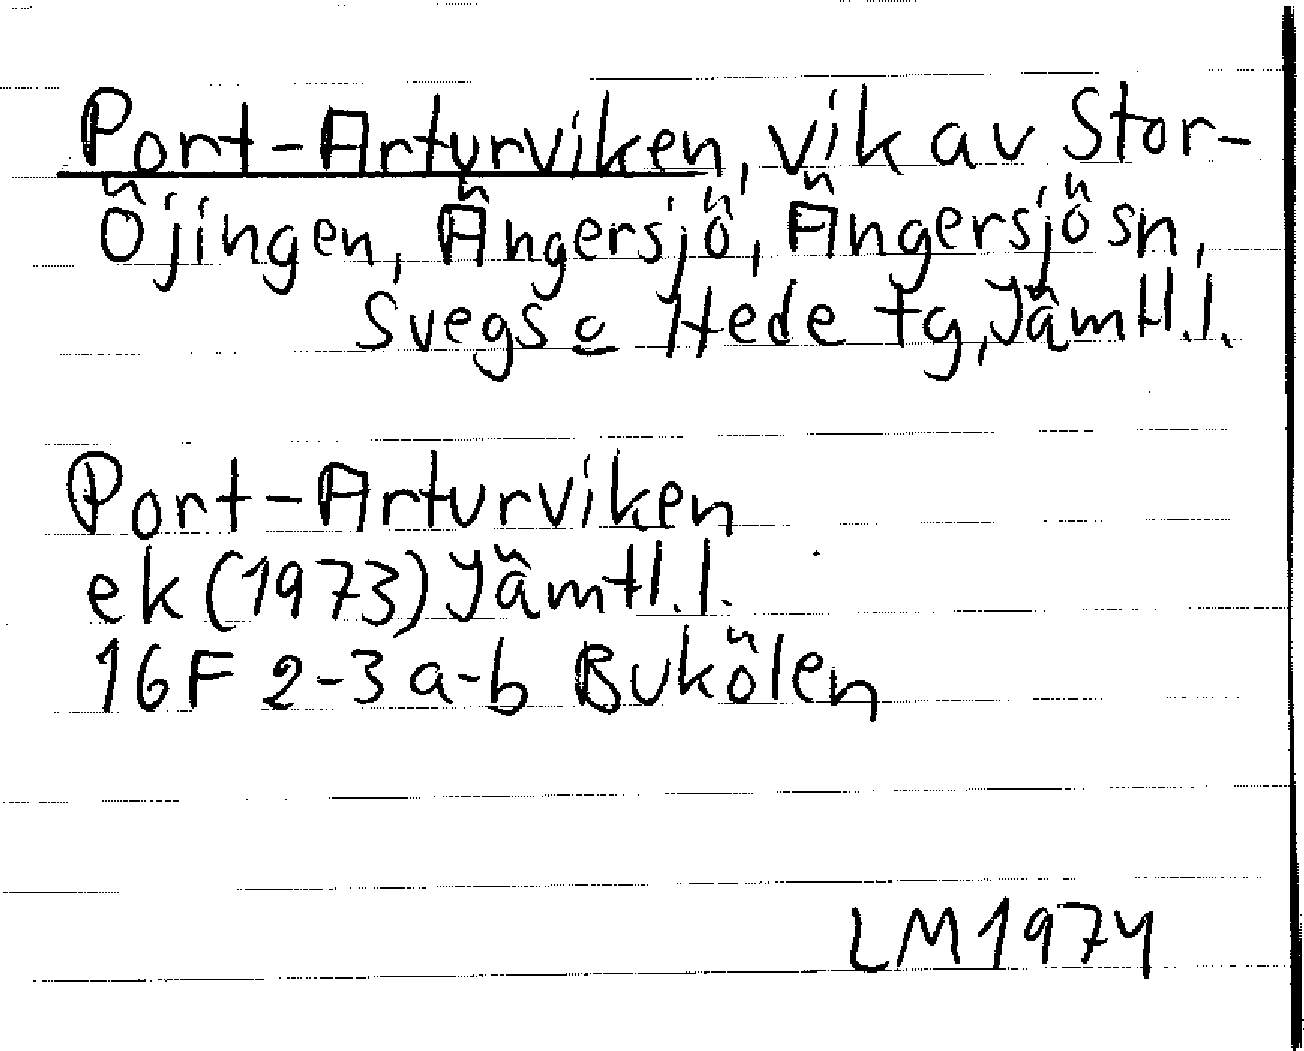 Port-Arturviken, vik av Stor-
Öjingen, Ängersjö, Ängersjösn,
Svegs o Hede tg, Jämtl.l.
Port-Arturviken
ek (1973) Jämtl.l.
16F 2-3 a-b Bukölen
LM 1974